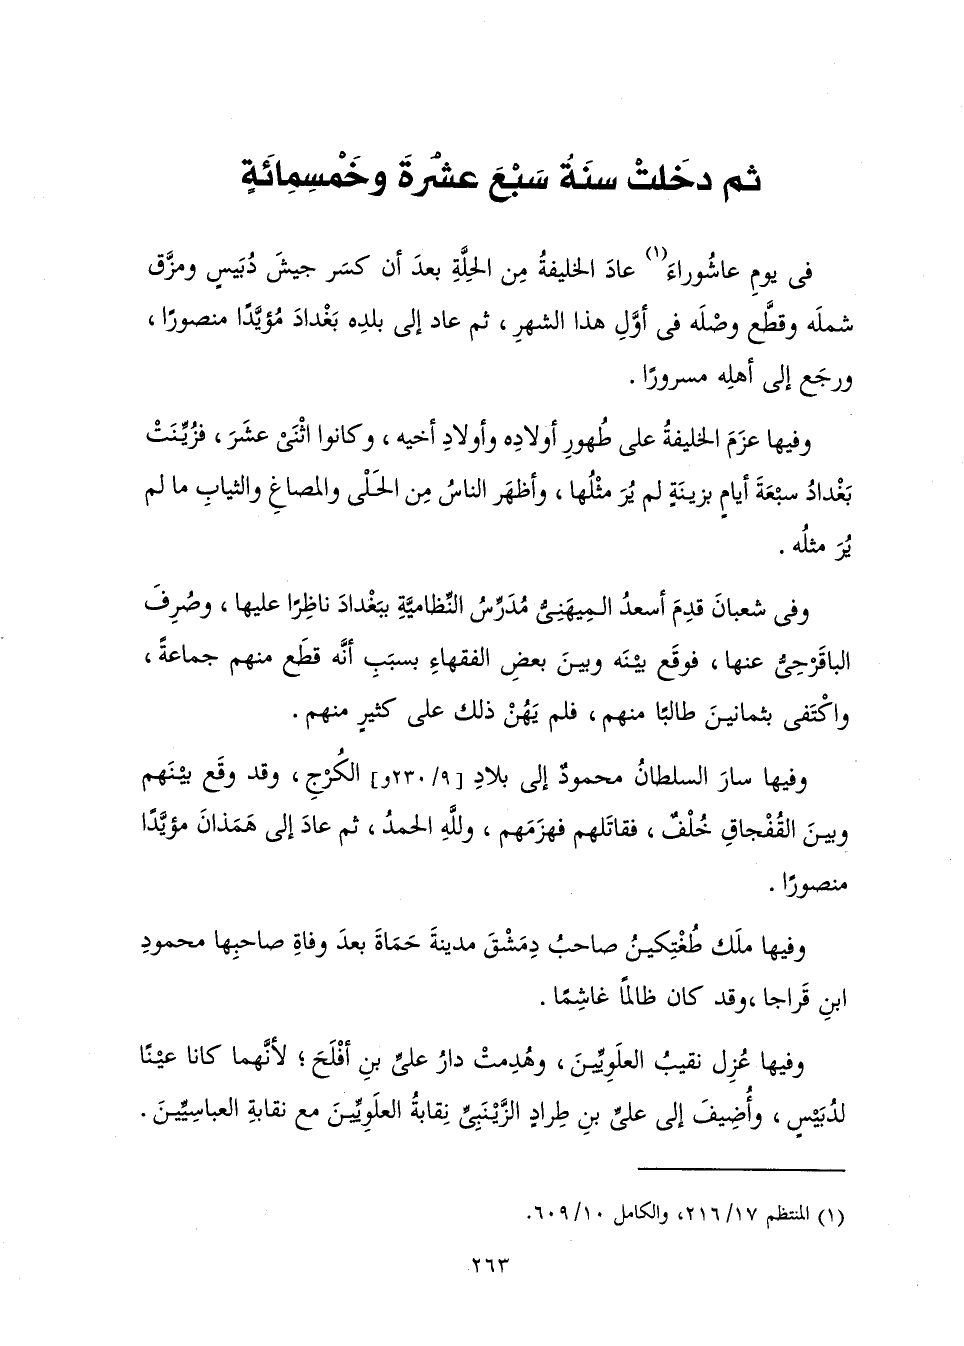 ثم دخَلتْ سنَةُ سَبْعَ عشْرةَ وخَمْسِمِائَةٍ
فى يومِ عاشُوراءَ(١) عادَ الخليفةُ مِن الحِلَّةِ بعدَ أن كسَر جيشَ دُبَيسٍ ومزَّق
شملَه وقطَّع وصْلَه فى أوَّلِ هذا الشهرِ ، ثم عاد إلى بلدِه بَغْدادَ مُؤيَّدًا منصورًا ،
ورجَع إلى أهلِه مسرورًا .
وفيها عزَمَ الخليفةُ على طُهورِ أولادِه وأولادِ أخيه ، وكانوا اثْنَىْ عشَرَ ، فزُيِّنَتْ
بَغْدادُ سبْعَةَ أيامٍ بزينَةٍ لم يُرَ مثْلُها ، وأظهَر الناسُ مِن الحَلْى والمصاغِ والثيابِ ما لم
يُرَ مثلُه .
وفى شعبانَ قدِمَ أسعدُ المِيهَنِىُّ مُدَرِّسُ النِّظاميَّةِ ببَغْدادَ ناظِرًا عليها ، وصُرِفَ
الباقَرْحِىُّ عنها ، فوقَع بيْنَه وبينَ بعضِ الفقهاءِ بسبَبِ أنَّه قطَع منهم جماعةً ،
واكْتَفى بثمانينَ طالبًا منهم ، فلم يَهُنْ ذلك على كثيرٍ منهم .
وفيها سارَ السلطانُ محمودٌ إلى بلادِ [٩/ ٢٣٠و] الكُرْجِ ، وقد وقَع بيْنَهم
وبينَ القُفْجاقِ خُلْفٌ ، فقاتَلهم فهزَمَهم ، وللَّهِ الحمدُ ، ثم عادَ إلى هَمَذانَ مؤيَّدًا
منصورًا .
وفيها ملَك طُغْتِكينُ صاحبُ دِمَشْقَ مدينةَ حَمَاةَ بعدَ وفاةِ صاحبِها محمودِ
ابنِ قَراجا ،وقد كان ظالمًا غاشِمًا .
وفيها عُزِل نقيبُ العلَويِّينَ ، وهُدِمتْ دارُ علىِّ بنِ أفْلَحَ ؛ لأنَّهما كانا عيْنًا
لدُبَيْسٍ ، وأُضِيفَ إلى علىِّ بنِ طِرادٍ الزَّيْنَبِىِّ نِقابةُ العلَويِّينَ مع نقابةِ العباسيِّينَ .
(١) المنتظم ١٧/ ٢١٦، والكامل ١٠/ ٦٠٩.
٢٦٣